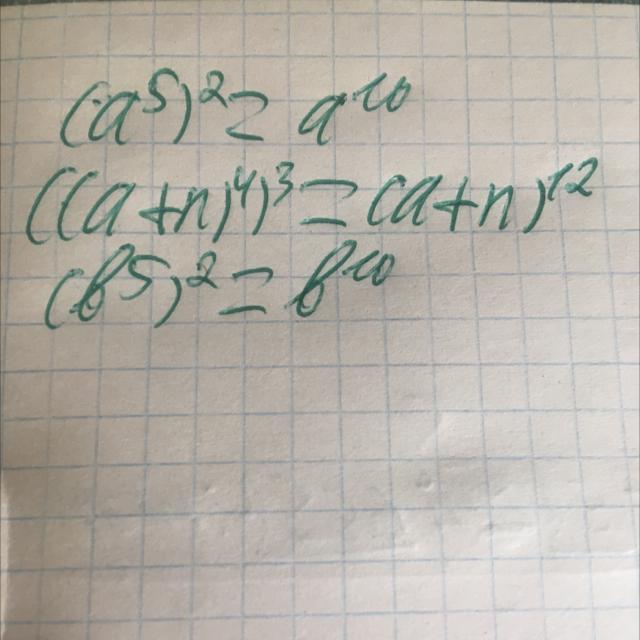 (a⁵)² = a¹⁰
((a+n)⁴)³ = (a+n)¹²
(b⁵)² = b¹⁰